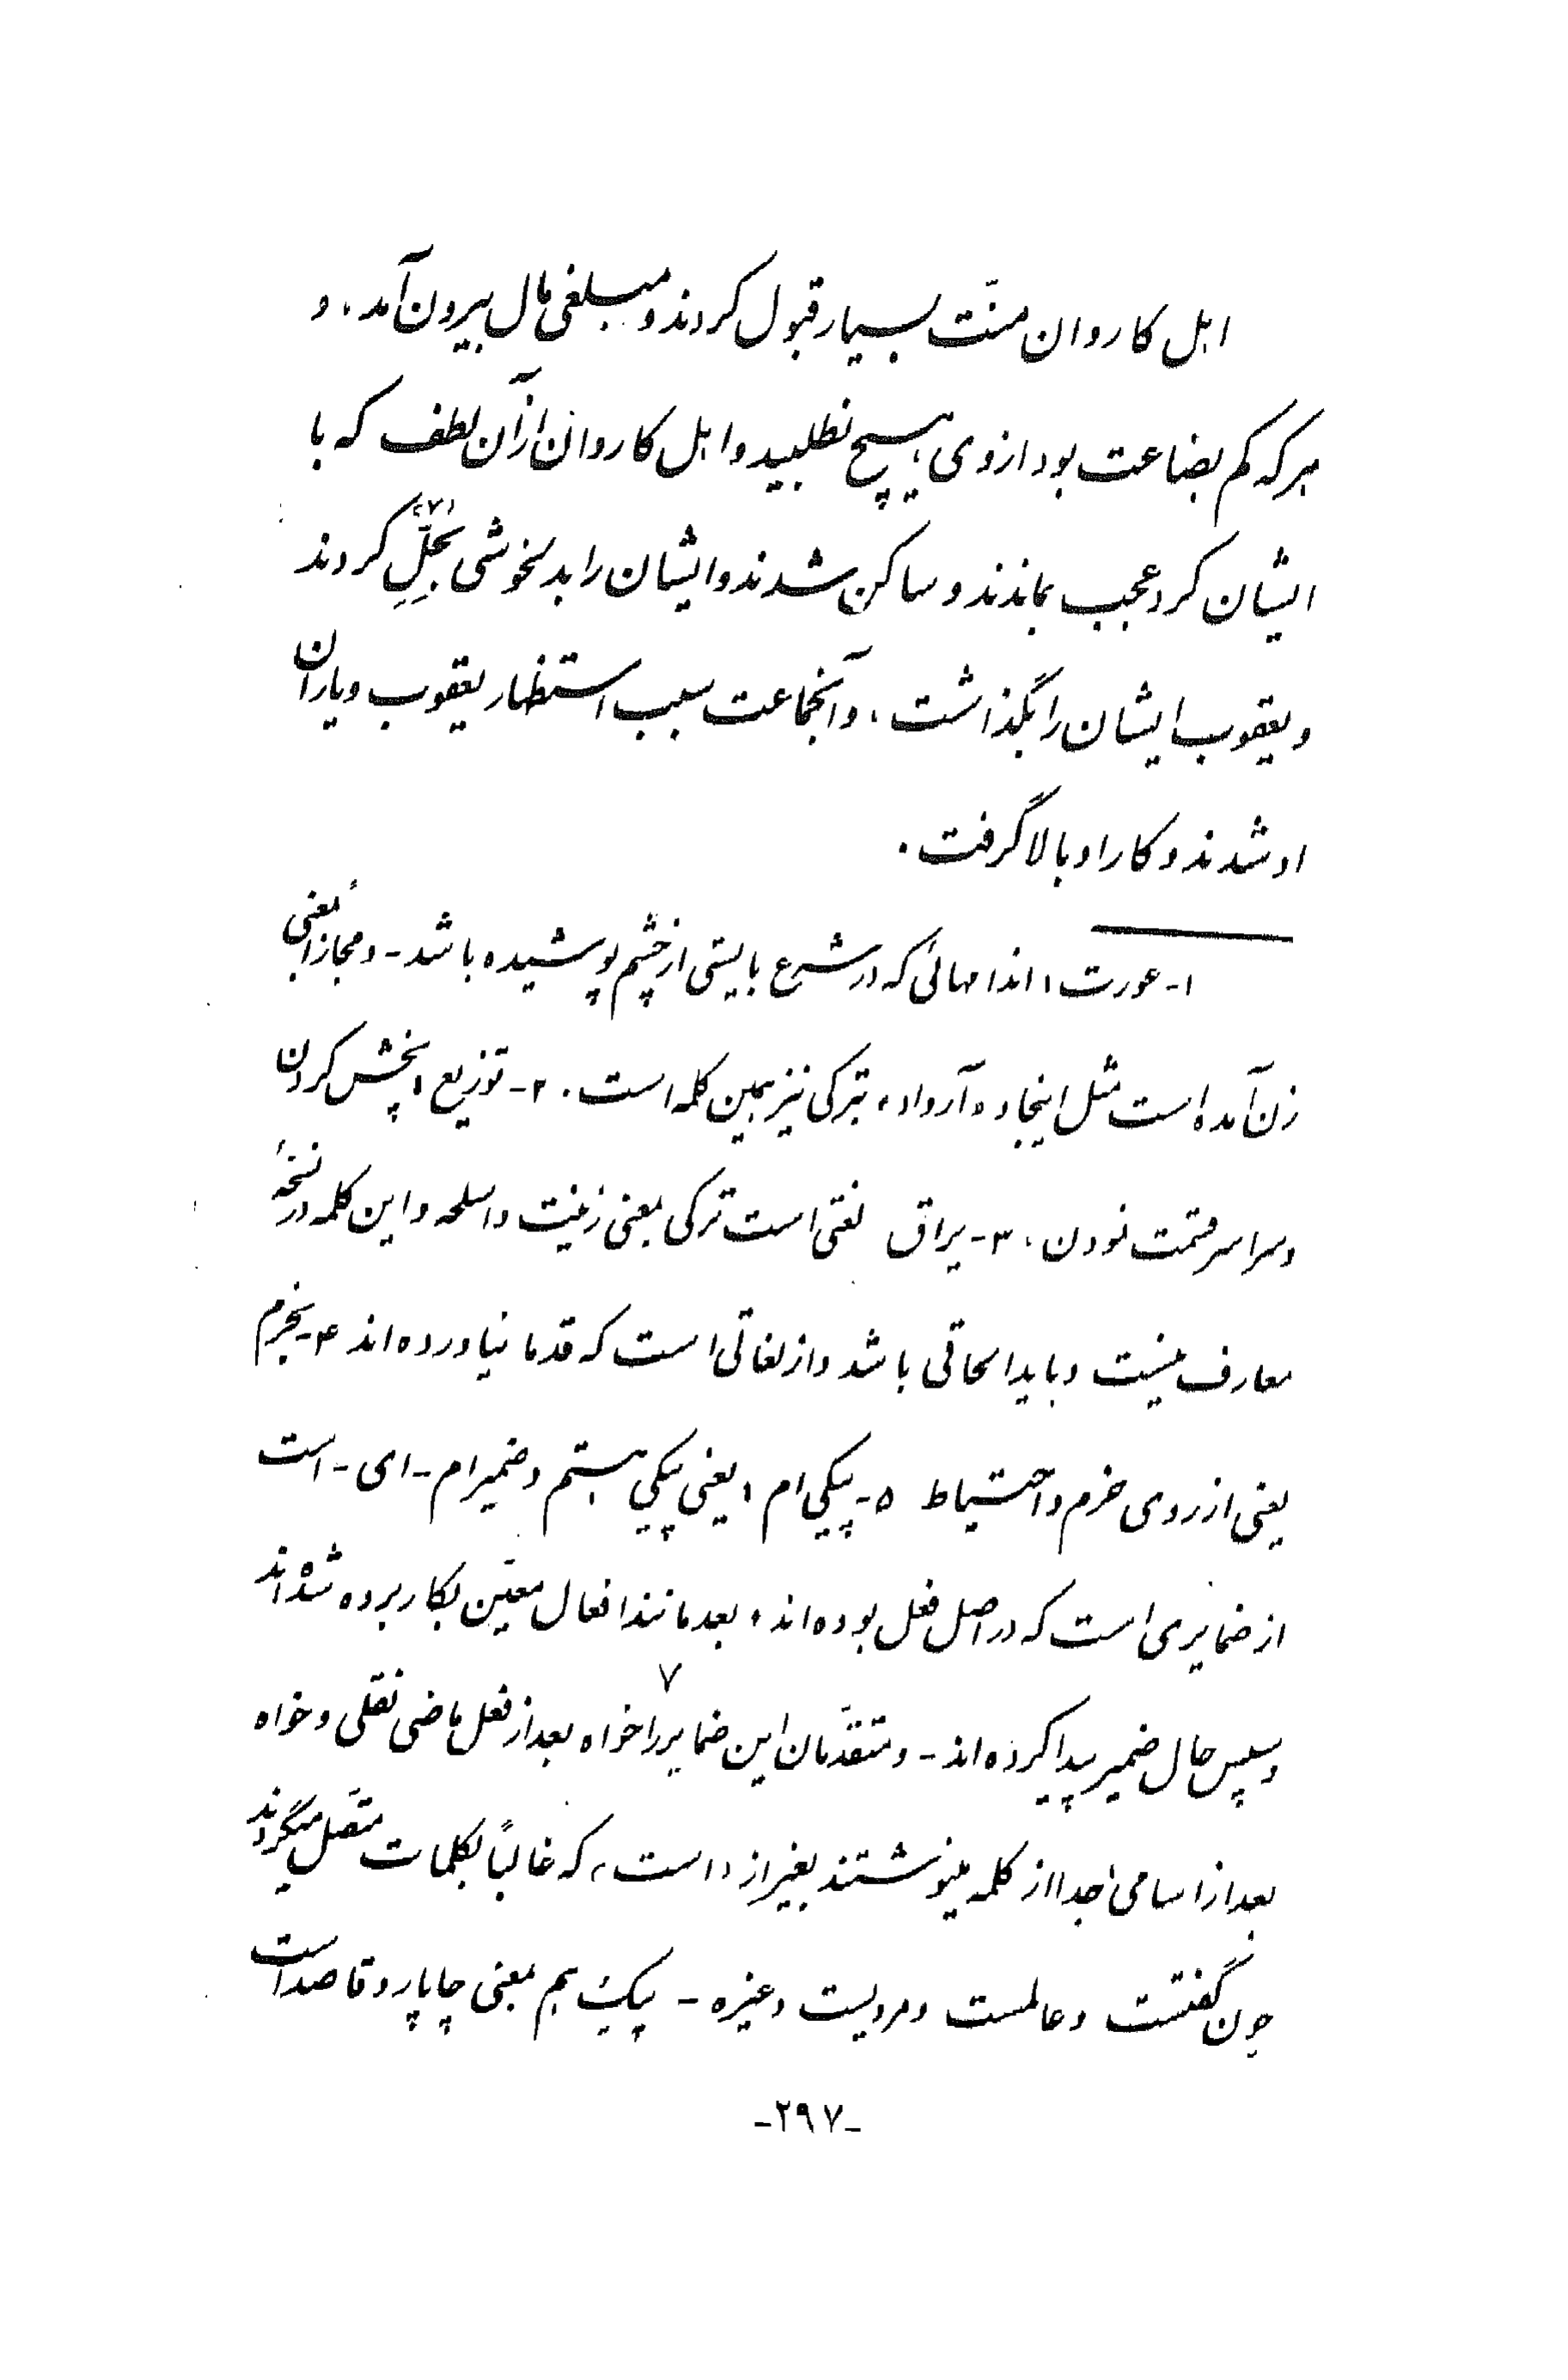 اهل کاروان منّت بسیار قبول کردند و مبلغی مال بیرون آمد، و
هر که کم بضاعت بود از وی هیچ نطلبید و اهل کاروان از آن لطف که با
ایشان کرد عجب بماندند و ساکن شدند و ایشان را بدلخوشی بحلّ (۷) کردند
و یعقوب ایشان را بگذاشت، و آنجماعت سبب استظهار یعقوب و یاران
او شدند و کار او بالا گرفت.
۱- عورت: اندامهائی که در شرع بایستی از چشم پوشیده باشد - و مجازاً بمعنی
زن آمده است مثل اینجا و «آرواد» بترکی نیز همین کلمه است. ۲- توزیع: پخش کردن
و سراسر قسمت نمودن. ۳- یراق لغتی است ترکی بمعنی زینت و اسلحه و این کلمه در نسخهٔ
معارف نیست و باید الحاقی باشد و از لغاتی است که قدما نیاورده‌اند ۴- بحزم
یعنی از روی حزم و احتیاط ۵- پیکی ام: یعنی پیکی هستم و ضمیر ام - ای - است
از ضمایری است که در اصل فعل بوده‌اند و بعد مانند افعال معیّن بکار برده شده‌اند
و سپس حال ضمیر پیدا کرده‌اند - و متقدّمان این ضمایر را خواه بعد از فعل ماضی نقلی و خواه
بعد از اسامی جدا از کلمه مینوشتند بغیر از «است» که غالباً بکلمات متّصل میگردند
چون گفتست و عالمست و مردیست و غیره - پیک هم بمعنی چاپار و قاصد است
-۲۹۷-